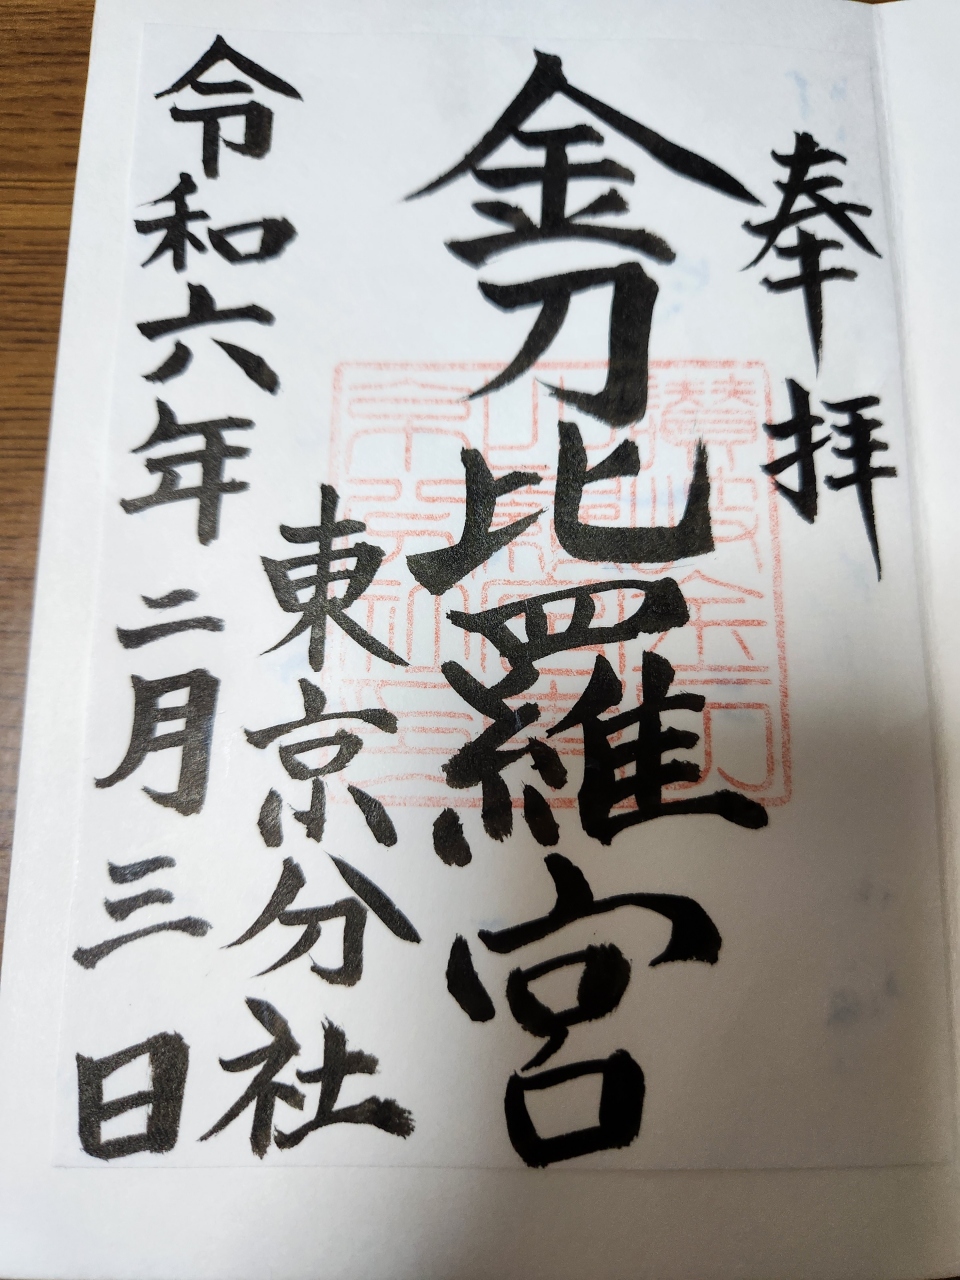 奉拝
金刀比羅宮
東京分社
令和六年二月三日